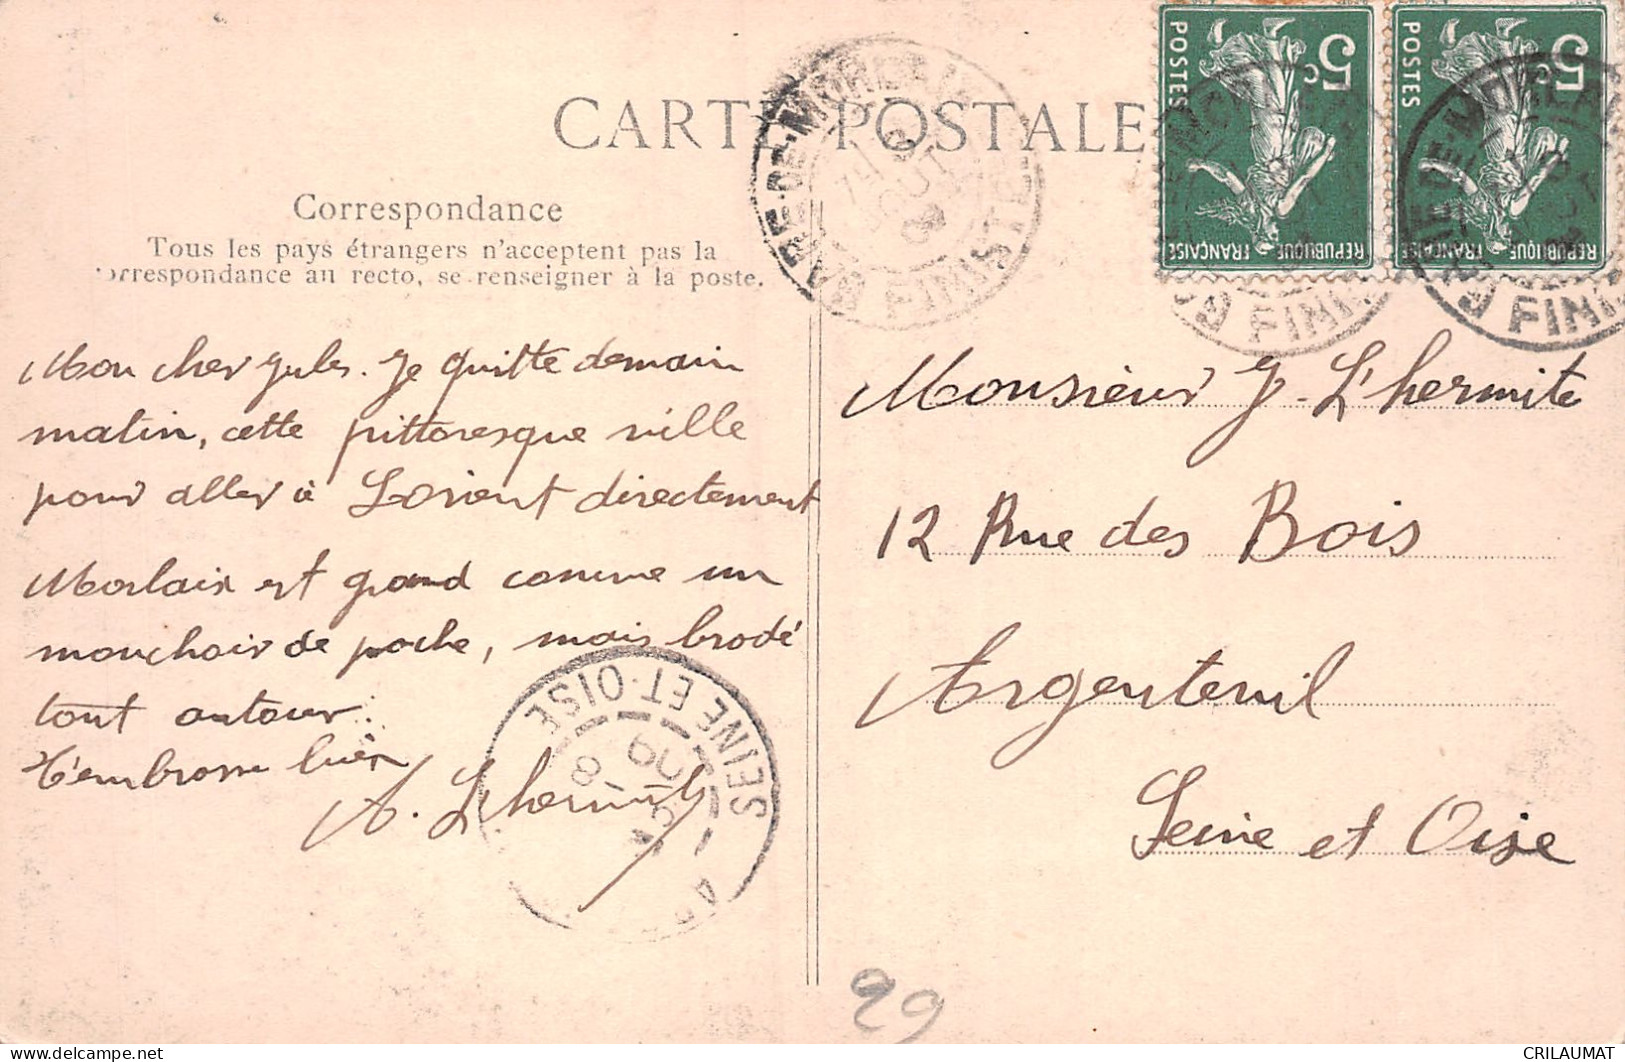 CARTE POSTALE
Correspondance
Tous les pays étrangers n'acceptent pas la
correspondance au recto, se renseigner à la poste.
Mon cher Jules. Je quitte demain
matin, cette pittoresque ville
pour aller à Lorient directement
Morlaix est grand comme un
mouchoir de poche, mais brodé
tout autour.
T'embrasse bien
A. Lhermite
Monsieur J. L'hermite
12 Rue des Bois
Argenteuil
Seine et Oise
5c
POSTES
REPUBLIQUE FRANÇAISE
5c
POSTES
REPUBLIQUE FRANÇAISE
GARE-DE-MORLAIX
FINISTERE
FINI
FINI
SEINE-ET-OISE
29
CRILAUMAT